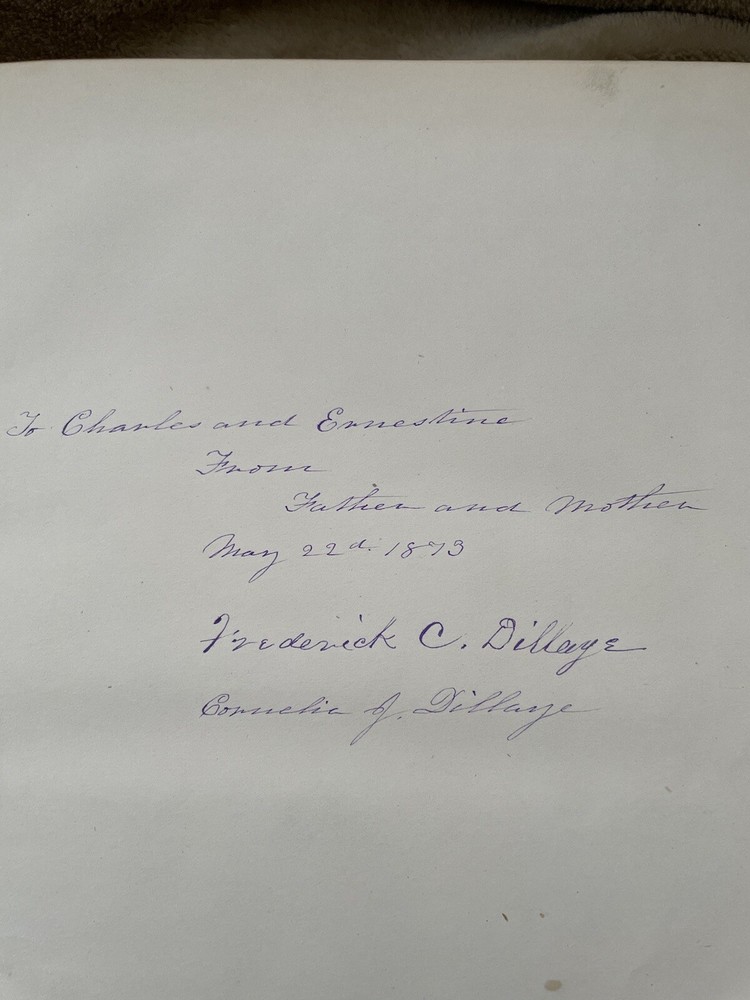 To Charles and Ernestine
From
Father and Mother
May 22d. 1873
Frederick C. Dillaye
Cornelia J. Dillaye